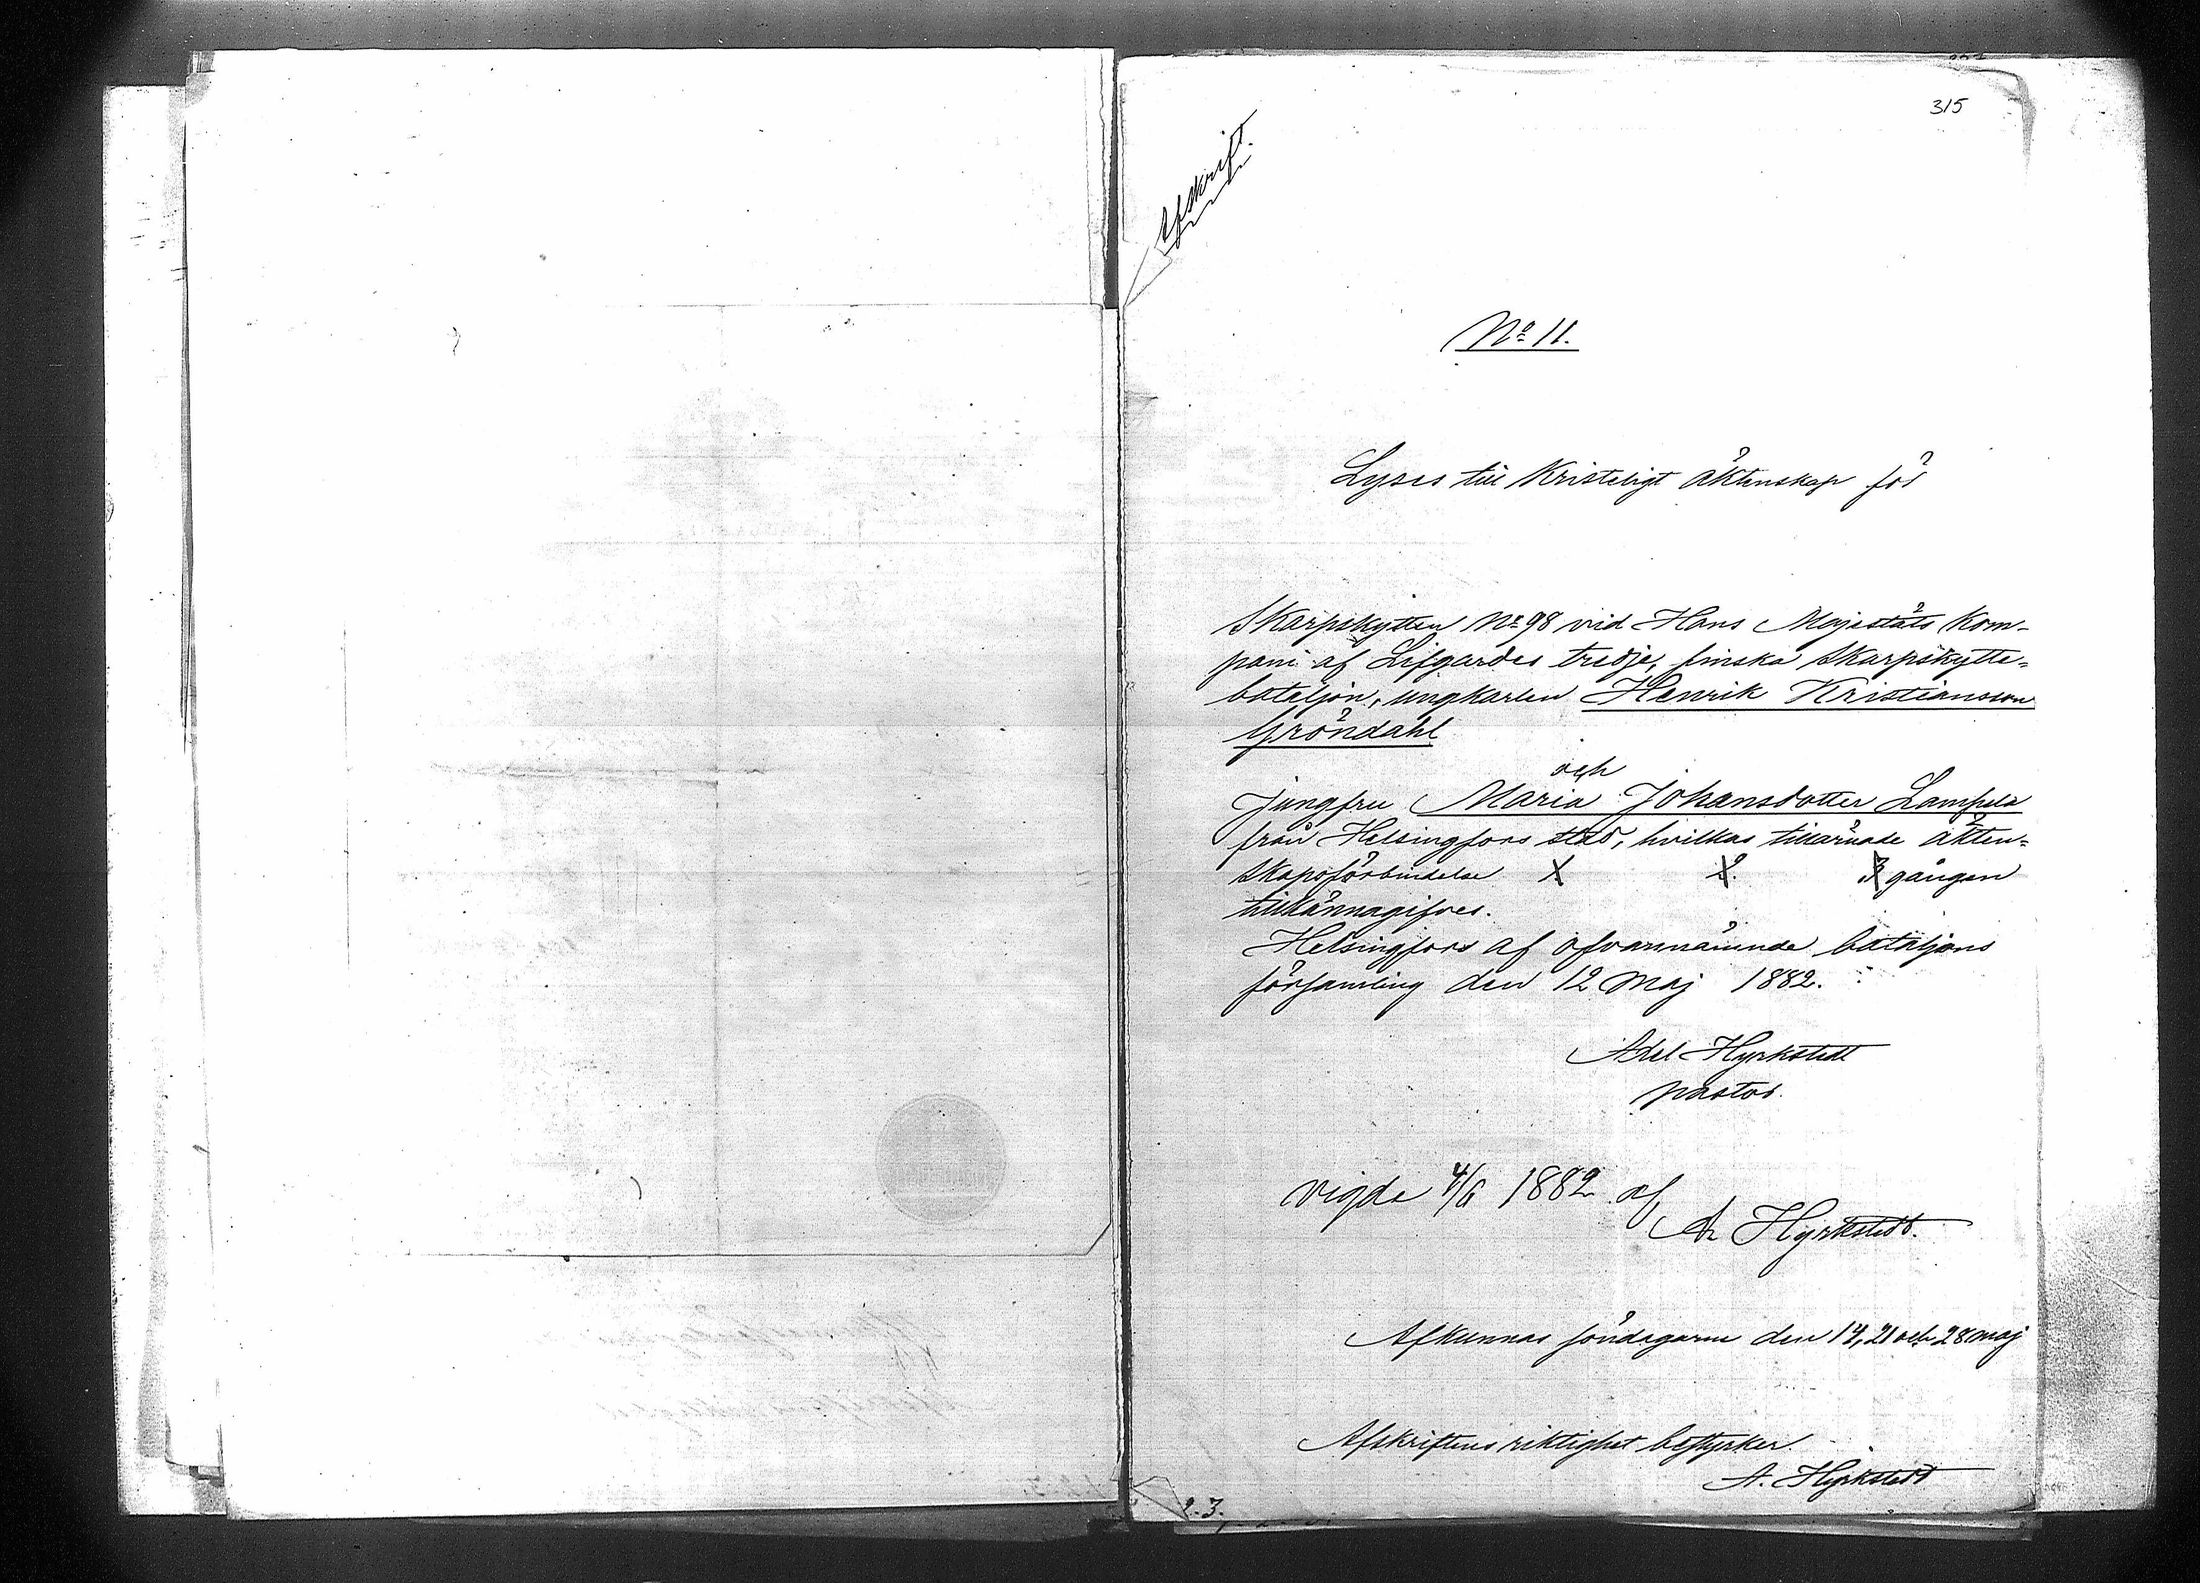 315
Afskrift.
No 11.
Lyses till Kristeligt äktenskap för
Skarpskytten No 98 vid Hans Majestäts Kom-
pani af Lifgardes tredje, finska Skarpskytte-
bataljon, ungkarlen Henrik Kristiansson
Gröndahl
och
jungfru Maria Johansdotter Lampela
från Helsingfors stad, hvilkas tillärnade äkten-
skapsförbindelse 1 2. 3 gången
tillkännagifves.
Helsingfors af ofvannämnde bataljons
församling den 12 Maj 1882.
Axel Hyrkstedt
pastor.
vigde 4/6 1882 af
Ax Hyrkstedt.
Afkunnas söndagarne den 14, 21 och 28 maj
Afskriftens riktighet bestyrker
A. Hyrkstedt
2.3.